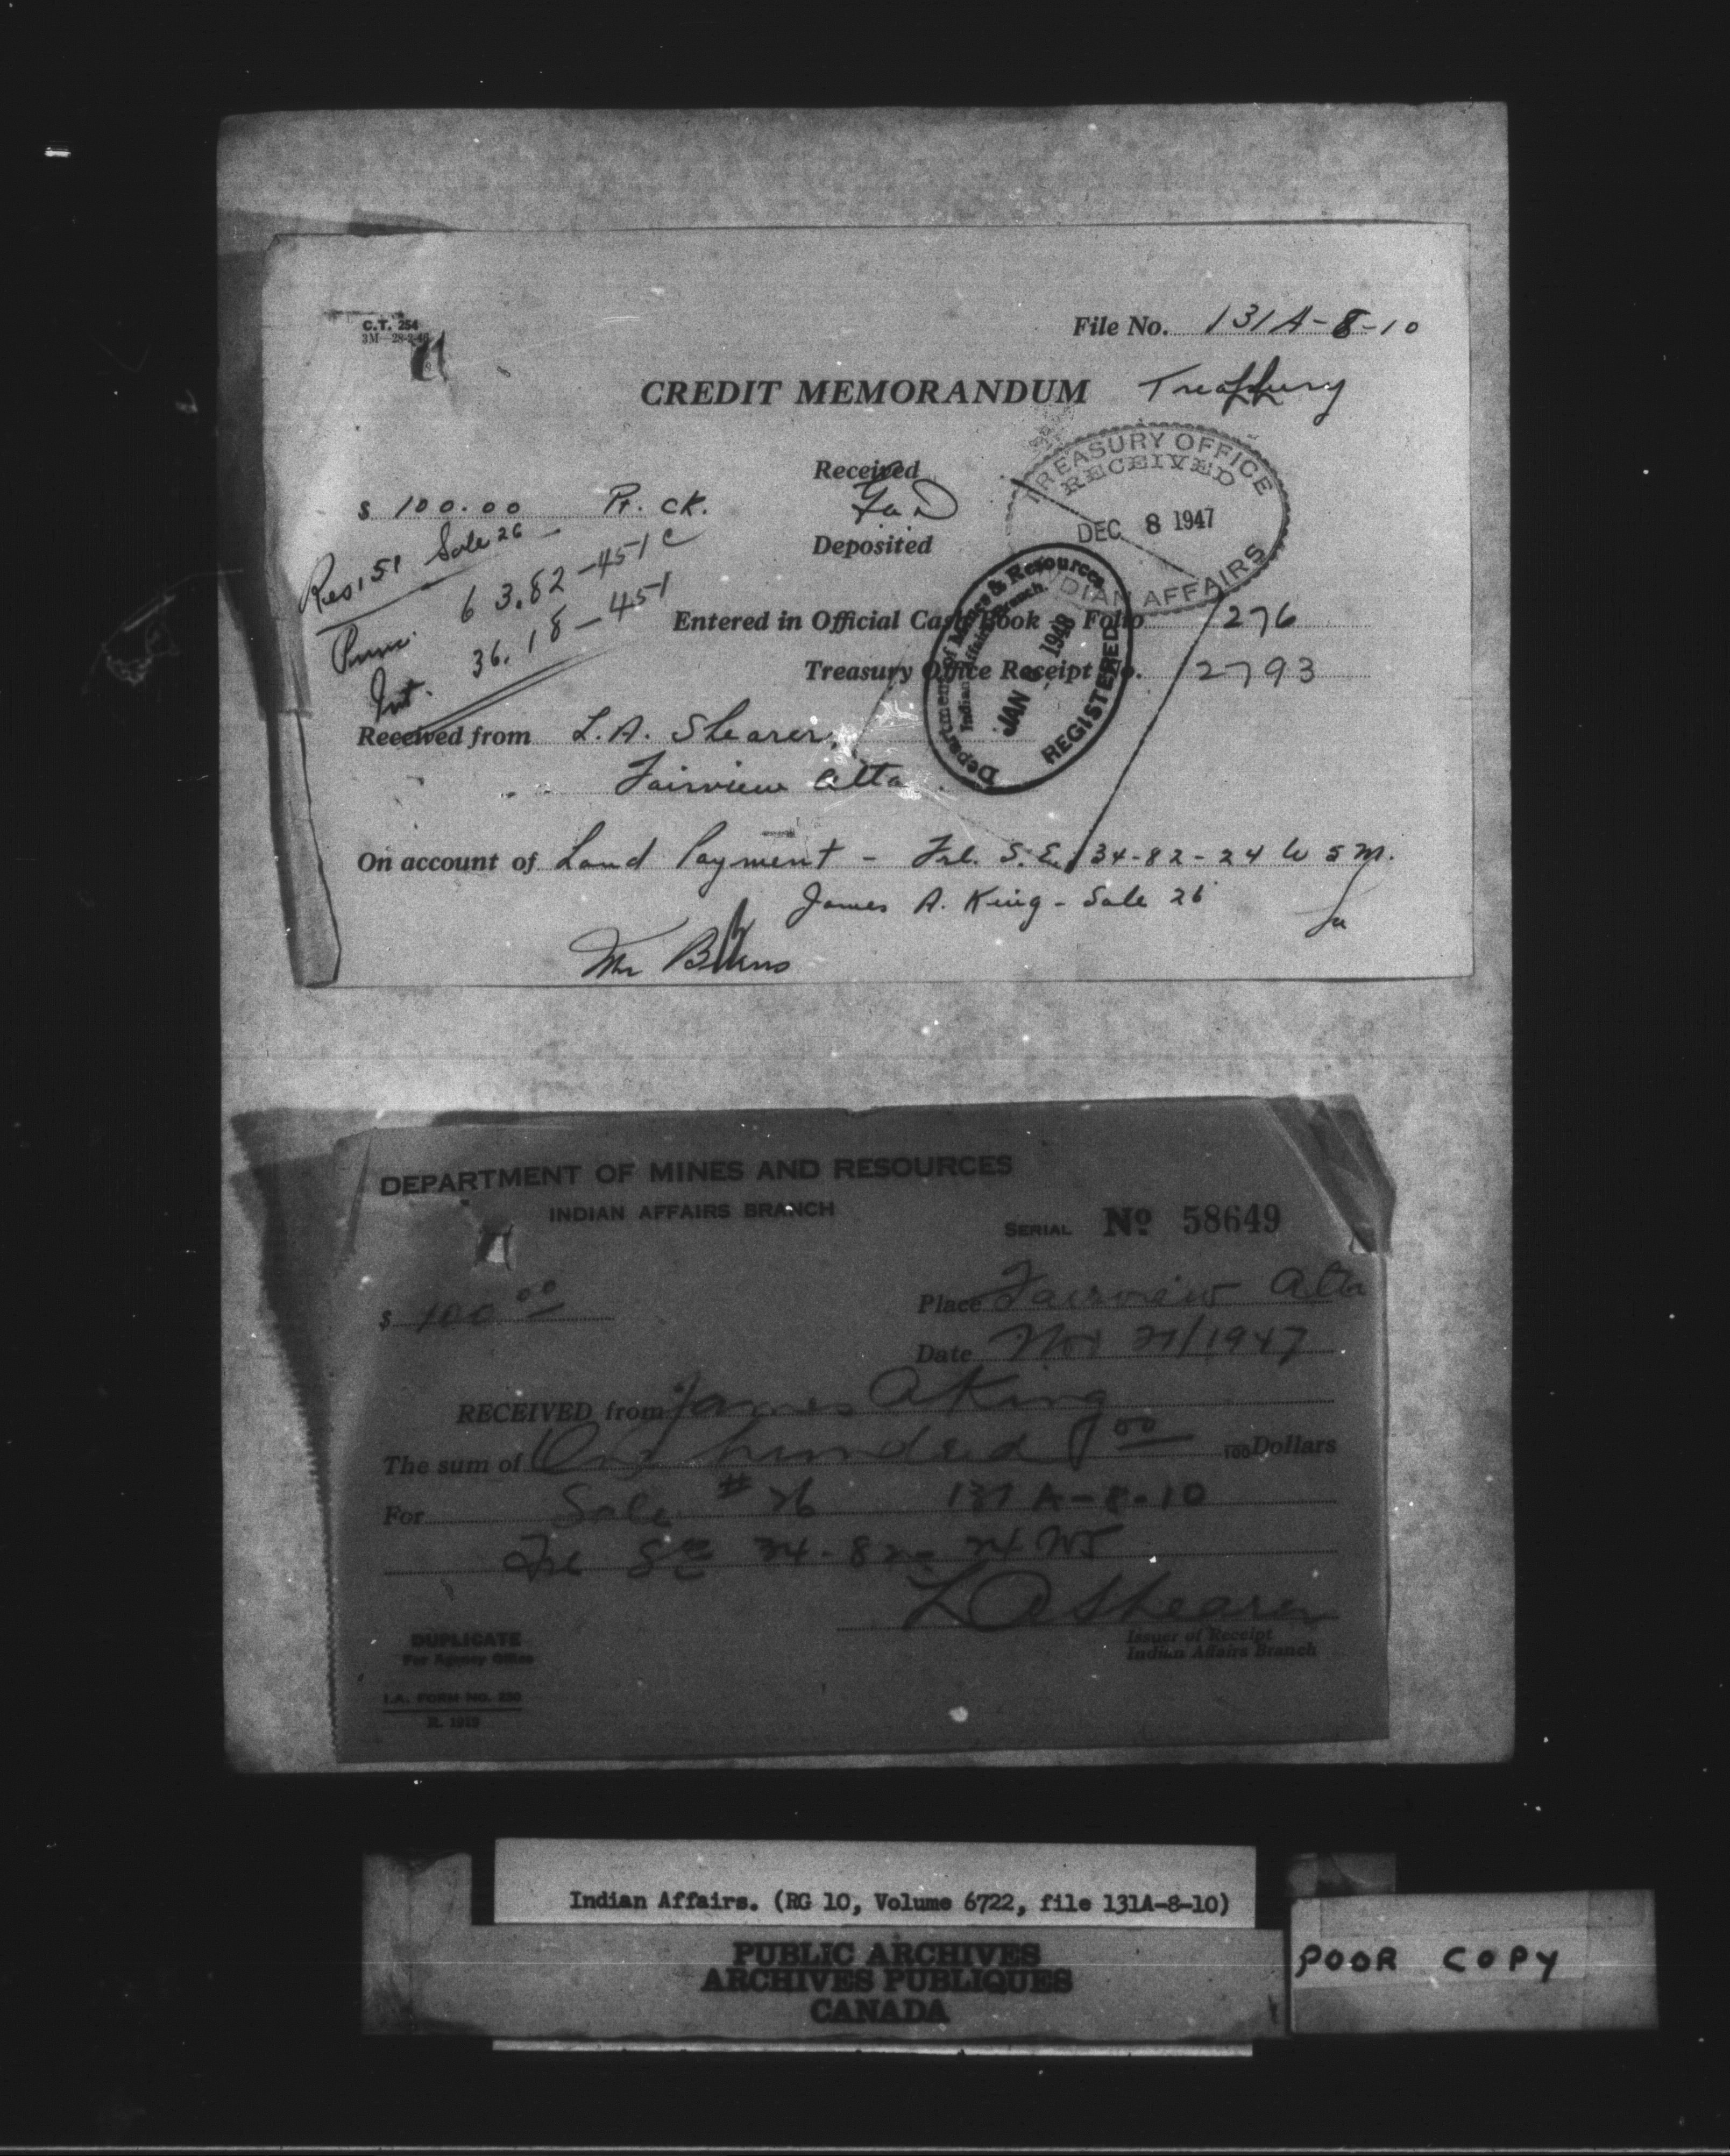 C.T. 254
3M—28-2-46
File No. 131A-8-10
CREDIT MEMORANDUM Treasury
Received
Deposited
TREASURY OFFICE
RECEIVED
DEC 8 1947
INDIAN AFFAIRS
$ 100.00 Pr. ck.
Res 151 Sale 26
63.82-451C
36.18-451
Int.
Department of Mines & Resources
Indian Affairs Branch
JAN 1948
REGISTERED
Entered in Official Cash Book Folio 276
Treasury Office Receipt No. 2793
Received from L.A. Shearer,
Fairview Alta.
On account of Land Payment - Frl. S.E. 34-82-24 W 5 M.
James A. King - Sale 26
Mr
DEPARTMENT OF MINES AND RESOURCES
INDIAN AFFAIRS BRANCH
SERIAL No 58649
$ 100.00
Place Fairview Alta
Date Nov 21/1947
RECEIVED from James A King
The sum of One hundred 00/100 Dollars
For Sale #26 131 A-8-10
Frl SE 34-82-24 W5
L A Shearer
Issuer of Receipt
Indian Affairs Branch
DUPLICATE
For Agency Office
I.A. FORM NO. 230
R. 1919
Indian Affairs. (RG 10, Volume 6722, file 131A-8-10)
PUBLIC ARCHIVES
ARCHIVES PUBLIQUES
CANADA
POOR COPY